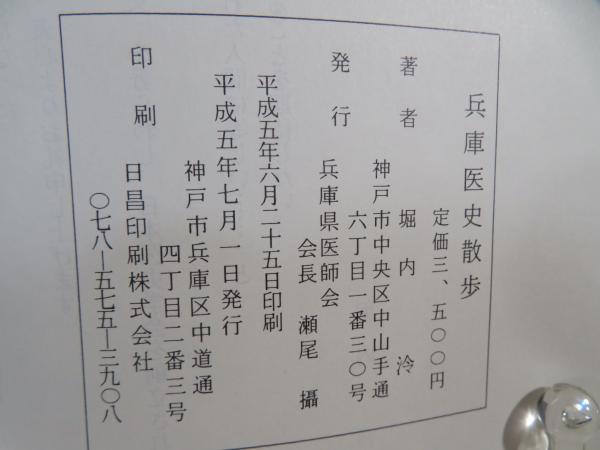 兵庫医史散歩
定価三、五〇〇円
著者 堀内 泠
神戸市中央区中山手通
六丁目一番三〇号
発行 兵庫県医師会
会長 瀬尾 攝
平成五年六月二十五日印刷
平成五年七月一日発行
神戸市兵庫区中道通
四丁目二番三号
印刷 日昌印刷株式会社
〇七八―五七五―三九〇八